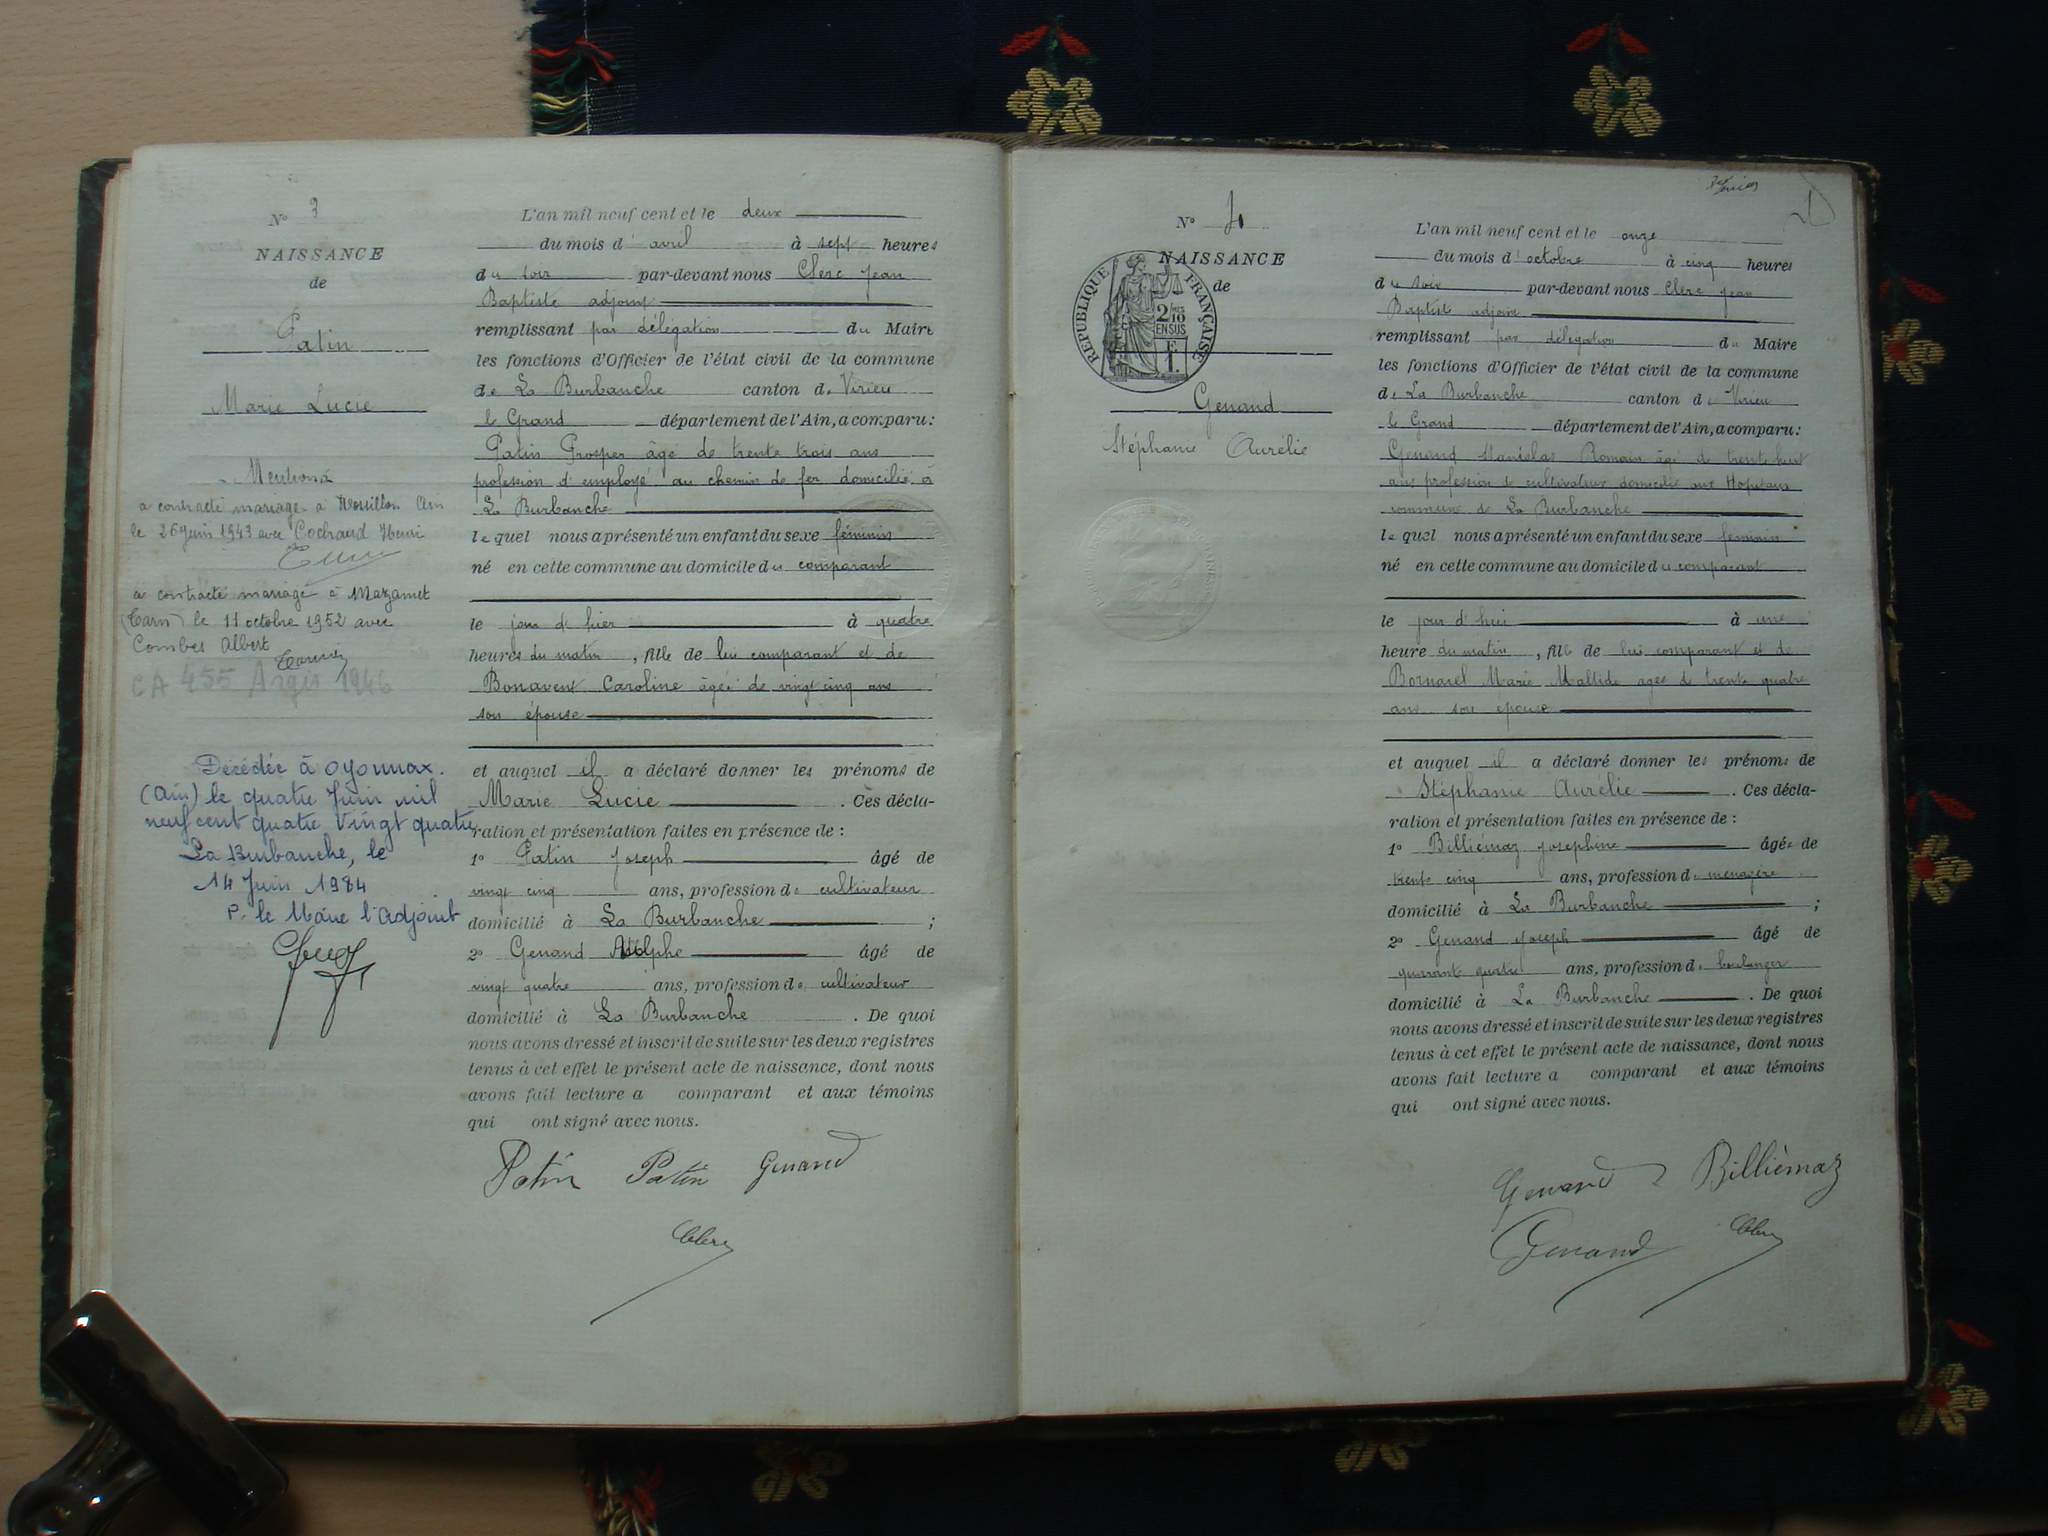 N° 3
NAISSANCE
de
Patin
Marie Lucie
Mentions
a contracté mariage à Ain
le 26 juin 1943 avec Cochand Henri
a contracté mariage à Mazamet
(Tarn) le 11 octobre 1952 avec
Combes Albert
CA 455 1946
Décédée à Oyonnax.
(Ain) le quatre Juin mil
neuf cent quatre vingt quatre
La Burbanche, le
14 Juin 1984
P. le Maire l'Adjoint
L'an mil neuf cent et le deux
du mois d' avril à sept heures
du soir par-devant nous Clerc Jean
Baptiste adjoint
remplissant par délégation du Maire
les fonctions d'Officier de l'état civil de la commune
de La Burbanche canton de Virieu
le Grand département de l'Ain, a comparu:
Patin Prosper âgé de trente trois ans
profession d'employé au chemin de fer domicilié à
La Burbanche
le quel nous a présenté un enfant du sexe féminin
né en cette commune au domicile du comparant
le jour d'hier à quatre
heures du matin, fille de lui comparant et de
Bonavent Caroline âgée de vingt cinq ans
son épouse
et auquel il a déclaré donner les prénoms de
Marie Lucie . Ces décla-
ration et présentation faites en présence de :
1° Patin Joseph âgé de
vingt cinq ans, profession de cultivateur
domicilié à La Burbanche ;
2° Genand Adolphe âgé de
vingt quatre ans, profession de cultivateur
domicilié à La Burbanche . De quoi
nous avons dressé et inscrit de suite sur les deux registres
tenus à cet effet le présent acte de naissance, dont nous
avons fait lecture a comparant et aux témoins
qui ont signé avec nous.
Patin Patin Genand
Clerc
N° 4
NAISSANCE
de
RÉPUBLIQUE FRANÇAISE
2/10 MES
EN SUS
1 F.
Genand
Stéphanie Aurélie
L'an mil neuf cent et le onze
du mois d'octobre à cinq heures
du soir par-devant nous Clerc Jean
Baptist adjoint
remplissant par délégation du Maire
les fonctions d'Officier de l'état civil de la commune
de La Burbanche canton de Virieu
le Grand département de l'Ain, a comparu:
Genand Stanislas Romain âgé de trente huit
ans profession de cultivateur domicilié aux Hopitaux
commune de La Burbanche
le quel nous a présenté un enfant du sexe féminin
né en cette commune au domicile du comparant
le jour d'hui à une
heure du matin, fille de lui comparant et de
Bornarel Marie Maltide agée de trente quatre
ans son épouse
et auquel il a déclaré donner les prénoms de
Stéphanie Aurélie . Ces décla-
ration et présentation faites en présence de :
1° Billiémaz Joséphine âgée de
trente cinq ans, profession de ménagère
domicilié à La Burbanche ;
2° Genand Joseph âgé de
quarant quatre ans, profession de boulanger
domicilié à La Burbanche . De quoi
nous avons dressé et inscrit de suite sur les deux registres
tenus à cet effet le présent acte de naissance, dont nous
avons fait lecture a comparant et aux témoins
qui ont signé avec nous.
Genand Billiémaz
Genand Clerc